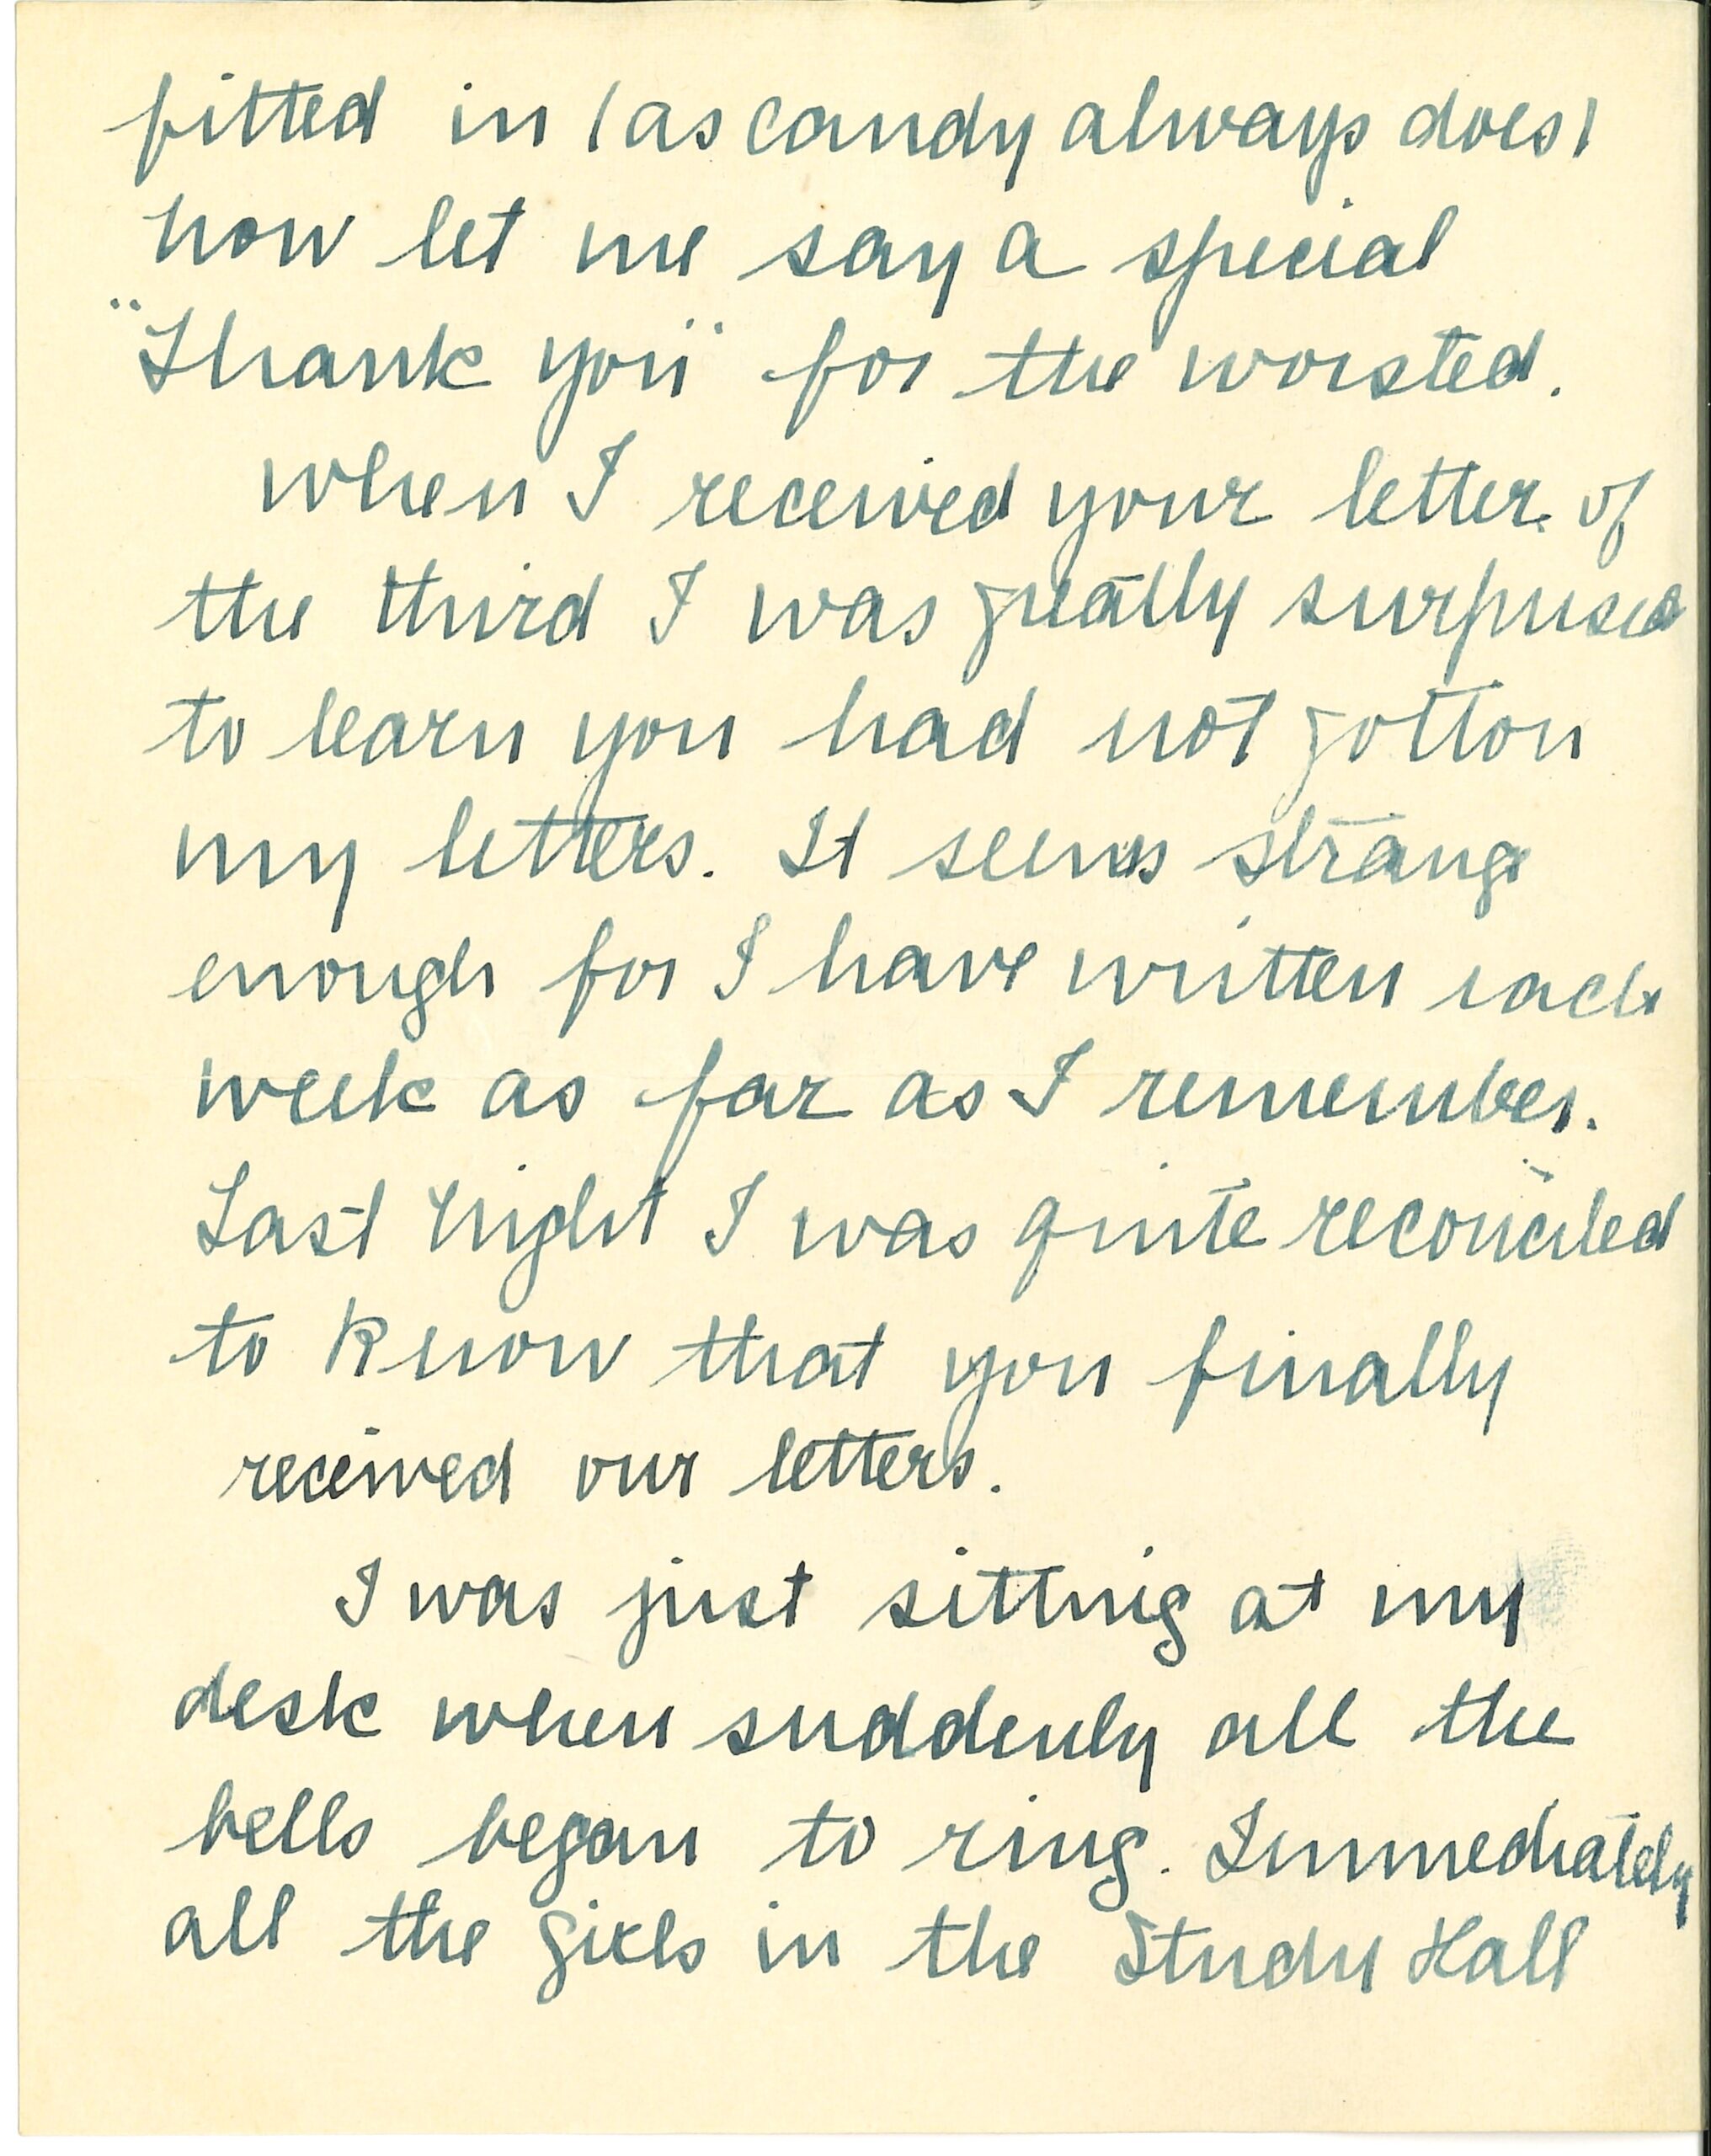 fitted in (as candy always does)
now let me say a special
"Thank you" for the worsted.
When I received your letter of
the third I was greatly surprised
to learn you had not gotton
my letters. It seems strange
enough for I have written each
week as far as I remember.
Last night I was quite reconciled
to know that you finally
received our letters.
I was just sitting at my
desk when suddenly all the
bells began to ring. Immediately
all the girls in the Study Hall